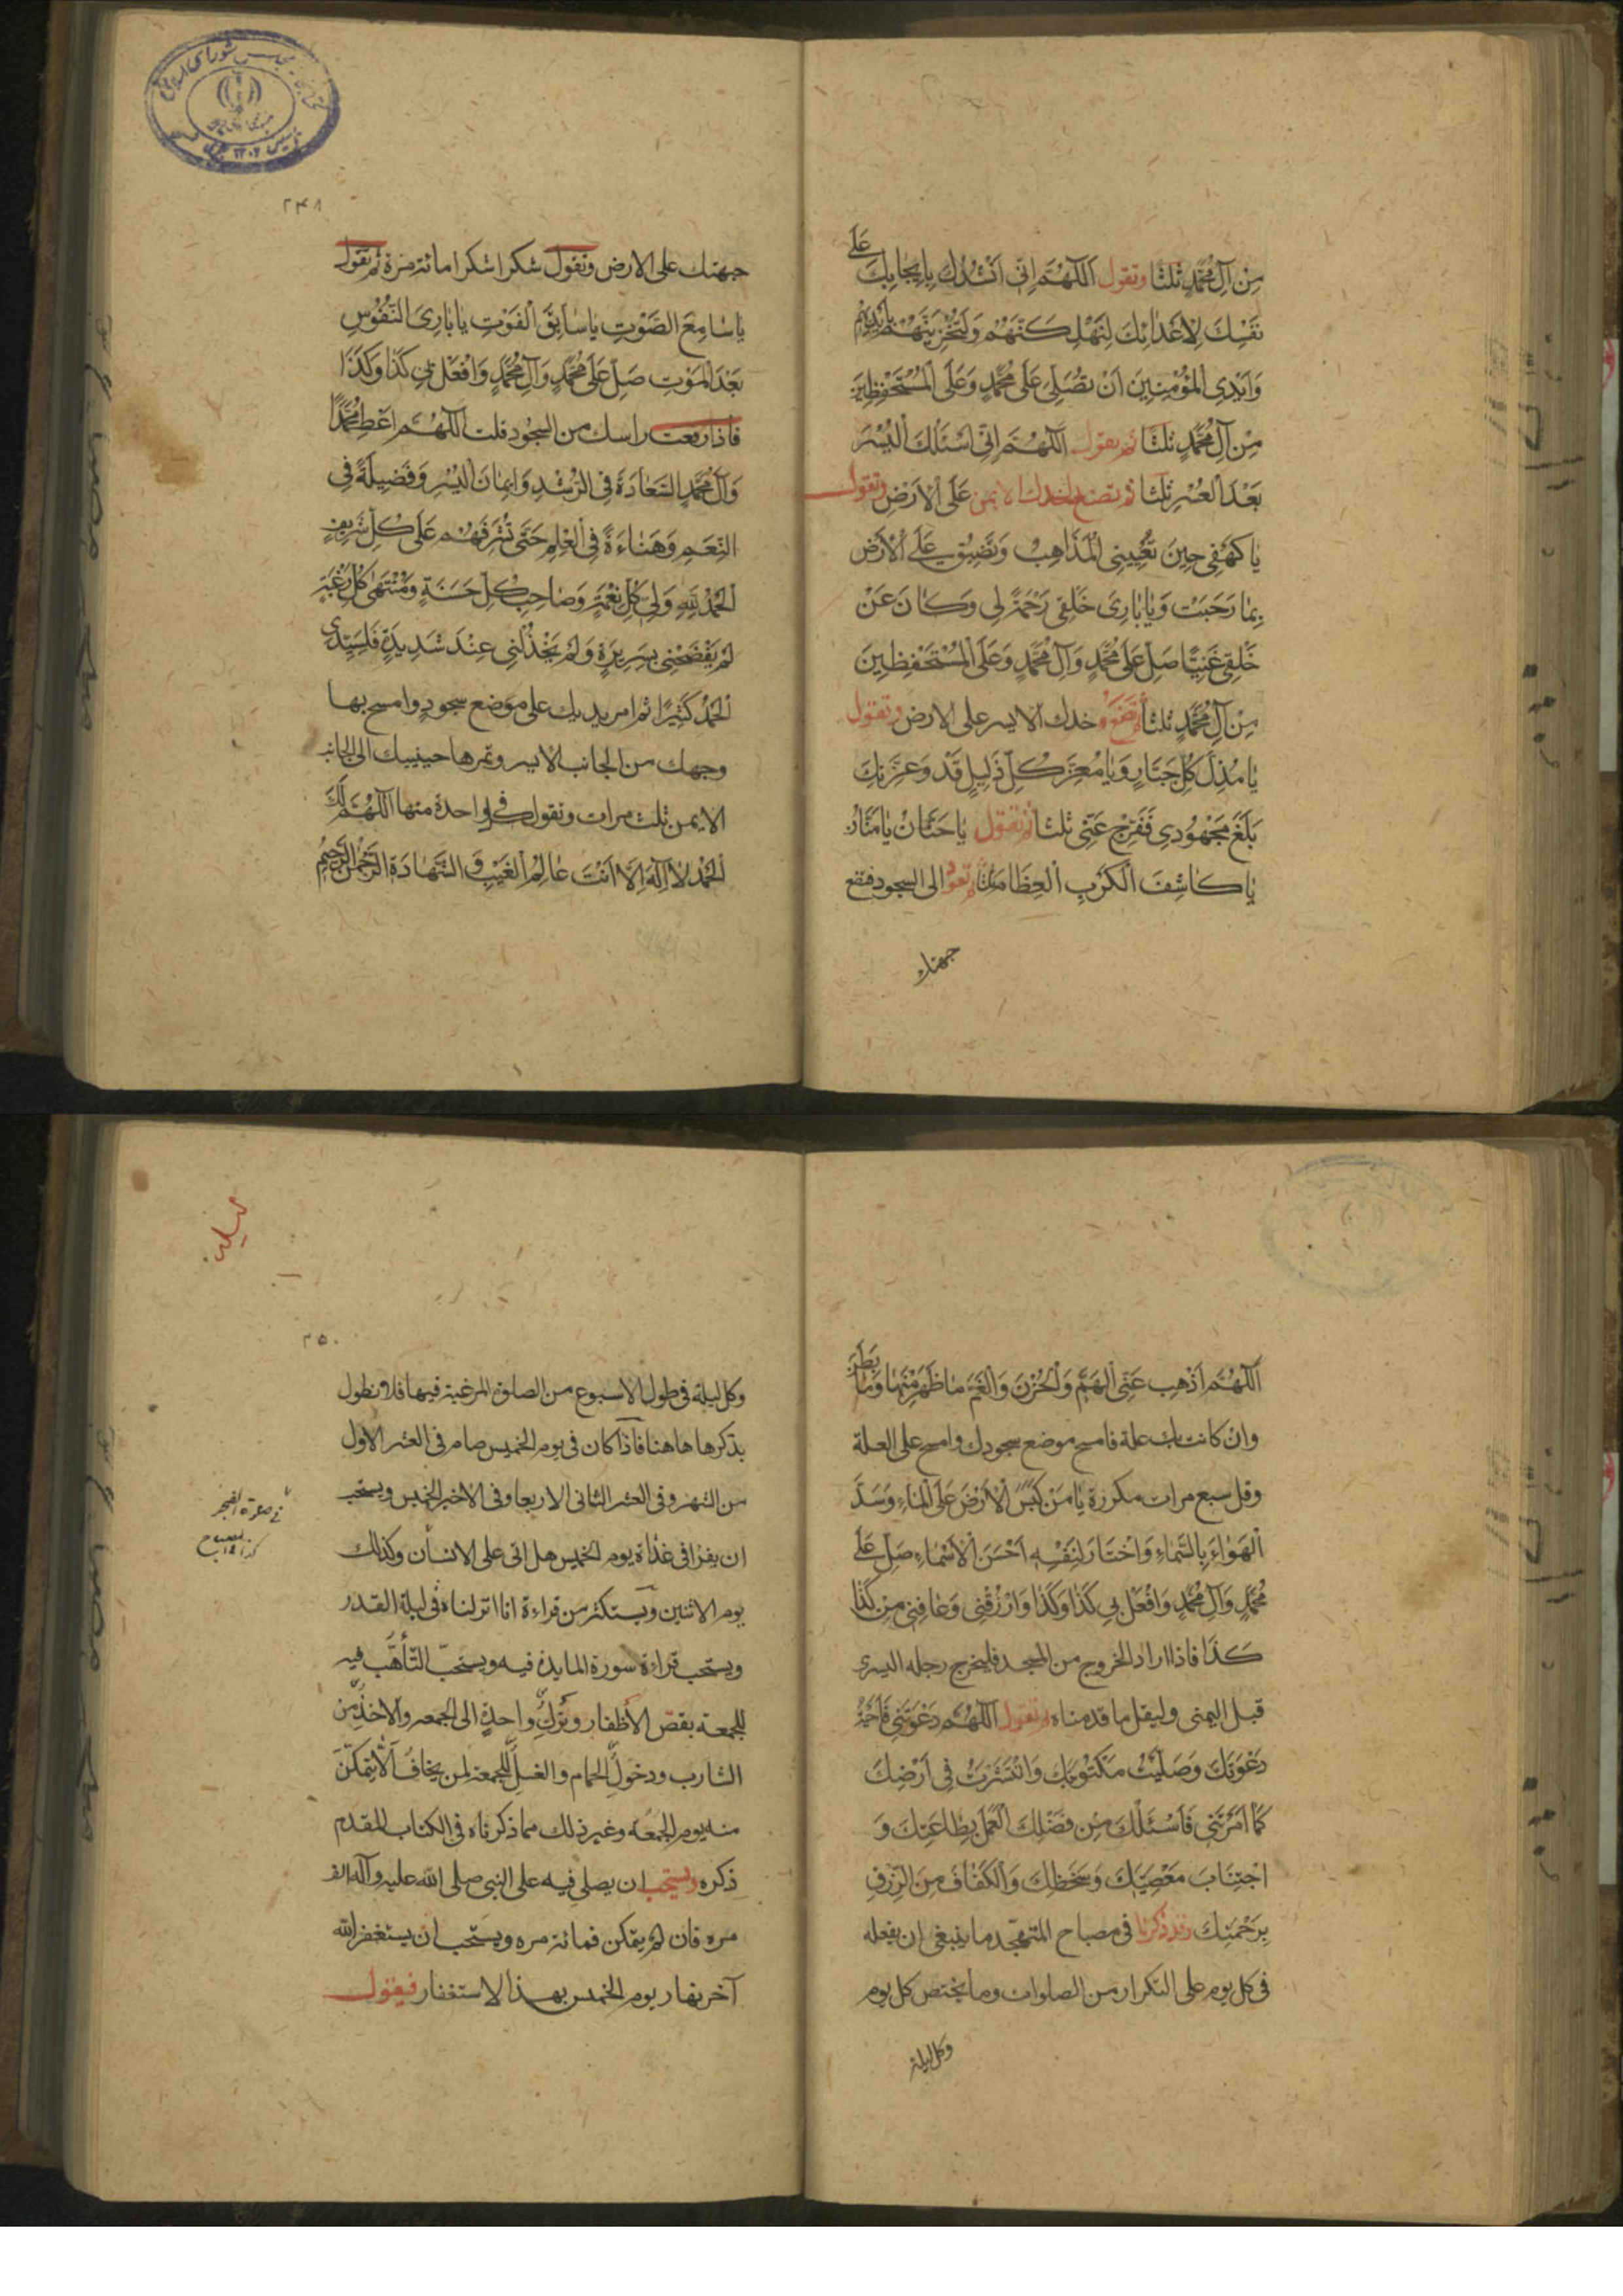 مِنْ آلِ مُحَمَّدٍ ثلثا وتقول اَللّهُمَّ اِنّى اَنْشُدُكَ بِايجابِكَ عَلى
نَفْسِكَ لِاَعْدائِكَ لَتُهْلِكَنَّهُمْ وَلَتُخْزِيَنَّهُمْ بِاَيْديهِمْ
وَاَيْدِى الْمُؤْمِنينَ اَنْ تُصَلِّىَ عَلى مُحَمَّدٍ وَعَلَى الْمُسْتَحْفَظينَ
مِنْ آلِ مُحَمَّدٍ ثلثا ثم يقول اَللّهُمَّ اِنّى اَسْئَلُكَ الْيُسْرَ
بَعْدَ الْعُسْرِ ثلثا ثم تضع خدك الايمن عَلَى الْاَرْضِ وتقول
يا كَهْفى حينَ تُعْيينِى الْمَذاهِبُ وَتَضيقُ عَلَىَّ الْاَرْضُ
بِما رَحُبَتْ وَيا بارِئَ خَلْقى رَحْمَةً لى وَكانَ عَنْ
خَلْقى غَنِيًّا صَلِّ عَلى مُحَمَّدٍ وَآلِ مُحَمَّدٍ وَعَلَى الْمُسْتَحْفَظينَ
مِنْ آلِ مُحَمَّدٍ ثلثا ثم تضع خدك الايسر على الارض وتقول
يا مُذِلَّ كُلِّ جَبّارٍ وَيا مُعِزَّ كُلِّ ذَليلٍ قَدْ وَعِزَّتِكَ
بَلَغَ مَجْهُودى فَفَرِّجْ عَنّى ثلثا ثم تقول يا حَنّانُ يا مَنّانُ
يا كاشِفَ الْكُرَبِ الْعِظامِ ثلثا ثم تعود الى السجود فتضع
جبهتك
٢٤٨
جبهتك على الارض وتقول شكرا شكرا مائة مرة ثم تقول
يا سامِعَ الصَّوْتِ يا سابِقَ الْفَوْتِ يا بارِئَ النُّفُوسِ
بَعْدَ الْمَوْتِ صَلِّ عَلى مُحَمَّدٍ وَآلِ مُحَمَّدٍ وَافْعَلْ بى كَذا وَكَذا
فاذا رفعت راسك من السجود قلت اَللّهُمَّ اَعْطِ مُحَمَّدًا
وَآلَ مُحَمَّدٍ السَّعادَةَ فِى الرُّشْدِ وَايمانَ الْيُسْرِ وَفَضيلَةً فِى
النِّعَمِ وَهَناءَةً فِى الْعِلْمِ حَتّى تُشَرِّفَهُمْ عَلى كُلِّ شَريفٍ
اَلْحَمْدُ لِلّهِ وَلِىِّ كُلِّ نِعْمَةٍ وَصاحِبِ كُلِّ حَسَنَةٍ وَمُنْتَهى كُلِّ رَغْبَةٍ
لَمْ يَفْضَحْنى بِسَريرَةٍ وَلَمْ يَخْذُلْنى عِنْدَ شَديدَةٍ فَلِسَيِّدى
اَلْحَمْدُ كَثيرًا ثم امرر يديك على موضع سجود وامسح بها
وجهك من الجانب الايسر وتمرها جبينك الى الجانب
الايمن ثلث مرات وتقول فى كل واحدة منها اَللّهُمَّ لَكَ
اَلْحَمْدُ لا اِلهَ اِلّا اَنْتَ عالِمُ الْغَيْبِ وَالشَّهادَةِ الرَّحْمنُ الرَّحيمُ
اَللّهُمَّ اَذْهِبْ عَنِّى الْهَمَّ وَالْحُزْنَ وَالْغَمَّ ما ظَهَرَ مِنْها وَما بَطَنَ
وان كانت بك علة فامسح موضع سجودك وامسح على العلة
وقل سبع مرات مكررة يا مَنْ كَبَسَ الْاَرْضَ عَلَى الْماءِ وَسَدَّ
الْهَواءَ بِالسَّماءِ وَاخْتارَ لِنَفْسِهِ اَحْسَنَ الْاَسْماءِ صَلِّ عَلى
مُحَمَّدٍ وَآلِ مُحَمَّدٍ وَافْعَلْ بى كَذا وَكَذا وَارْزُقْنى وَعافِنى مِنْ كَذا
كَذا فاذا اراد الخروج من المسجد فليخرج رجله اليسرى
قبل اليمنى وليقل ما قدمناه ثم تقول اَللّهُمَّ دَعَوْتَنى فَاَجَبْتُ
دَعْوَتَكَ وَصَلَّيْتُ مَكْتُوبَتَكَ وَانْتَشَرْتُ فى اَرْضِكَ
كَما اَمَرْتَنى فَاَسْئَلُكَ مِنْ فَضْلِكَ الْعَمَلَ بِطاعَتِكَ وَ
اجْتِنابَ مَعْصِيَتِكَ وَسَخَطِكَ وَالْكَفافَ مِنَ الرِّزْقِ
بِرَحْمَتِكَ وقد ذكرنا فى مصباح المتهجد ما ينبغى ان يفعله
فى كل يوم على التكرار من الصلوات وما يختص كل يوم
وكل ليلة
٢٥٠
وكل ليلة فى طول الاسبوع من الصلوة المرغبة فيها فلا نطول
بذكرها هاهنا فاذا كان فى يوم الخميس صام فى العشر الاول
من الشهر وفى العشر الثانى الاربعا وفى الاخير الخميس ويستحب
ان يقرا فى غداة يوم الخميس هل اتى على الانسان وكذلك
يوم الاثنين ويستكثر من قراءة انا انزلناه فى ليلة القدر
ويستحب قراءة سورة المايدة فيه ويستحبّ التأهّب فيه
للجمعة بقصّ الأظفار وترك واحدة الى الجمعه والاخذ من
الشارب ودخول الحمام والغسل للجمعة لمن يخاف الّا يتمكّن
منه يوم الجمعه وغير ذلك مما ذكرناه فى الكتاب المقدم
ذكره ويستحب ان يصلى فيه على النبى صلى الله عليه وآله الف
مره فان لم يتمكن فمائة مره ويستحب ان يستغفر الله
آخر نهار يوم الخميس بهذا الاستغفار فيقول
فى صلوة الفجر
كذا فى المصباح